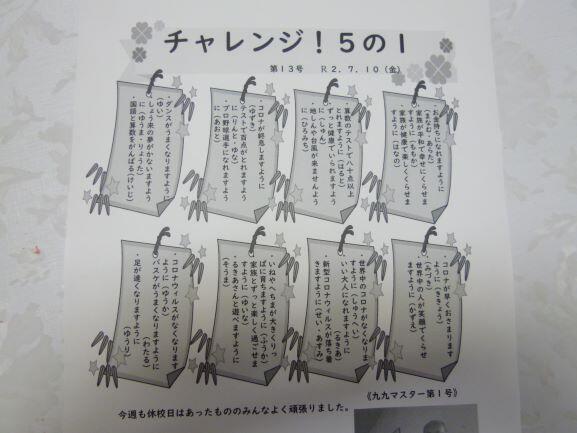 チャレンジ！５の１
第１３号　Ｒ２.７.１０（金）
お金持ちになれますように
（まなむ・あらた）
家族が平和で幸せにくらせま
すように（ももか）
家族が健康で楽しくくらせま
すように（はなの）
・算数のテストで八十点以上
とれますように（はると）
ずっと健康でいられますよう
に（しゅん）
地しんや台風が来ませんよう
に（ひろみち）
・コロナが終息しますように
（ゆずき）
テストで百点がとれますよう
に（りんと・ゆな）
・プロ野球選手になれますよう
に（あおと）
・ダンスがうまくなりますように
（ゆい）
しょう来の夢がかないますよう
に（ゆうま・りょうた）
・国語と算数をがんばる（けいじ）
コロナが早くおさまります
ように（ききょう）
（みづき）
世界中の人が笑顔でくらせ
ますように（かずえ）
・世界中のコロナがなくなりま
すように（しゅうへい）
いい大人になれますように
（るきあ）
・新型コロナウィルスが落ち着
きますように（せい・あすみ）
・いねやへちまが大きくりっ
ぱに育ちますように（ふうか）
家族とずっと楽しく過ごせま
すように（ゆいな）
・るきあさんと遊べますように
（そうま）
・コロナウィルスがなくなります
ように（ゆうか）
バスケがうまくなりますように
（わたる）
・足が速くなりますように
（ゆうり）
《九九マスター第１号》
今週も休校日はあったもののみんなよく頑張りました。